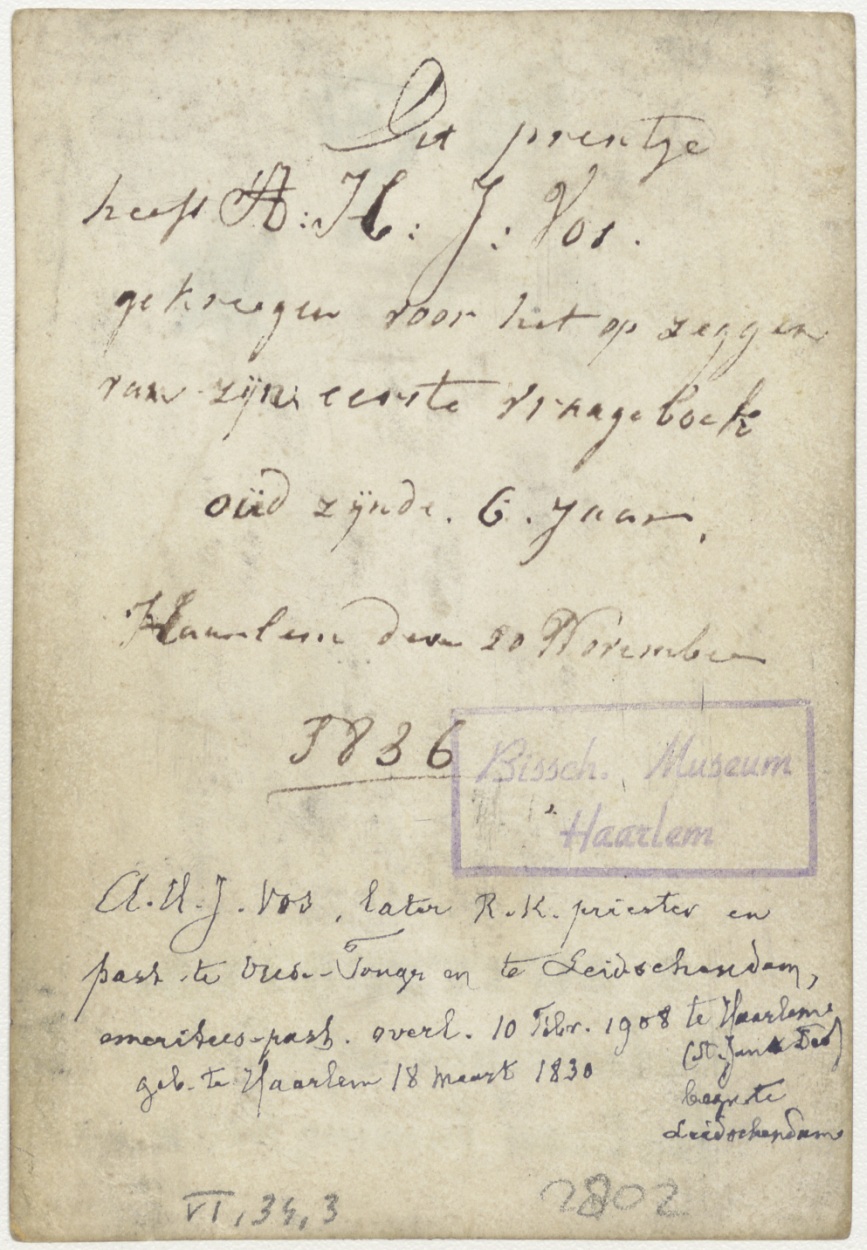 Dit prentje
heeft A: H: J: Vos.
gekreegen voor het op zeggen
van zijn eerste vraageboek
oüd zijnde. 6. Jaar,
Haarlem den 20 November
1836
Bissch. Museum
Haarlem
A.H.J. Vos, later R.K. priester en
past. te Oude-Tonge en te Leidschendam,
emeritus-past. overl. 10 Febr. 1908 te Haarlem
(St. Jan de Deo)
geb. te Haarlem 18 maart 1830
begr. te
Leidschendam
VI, 34, 3
2802